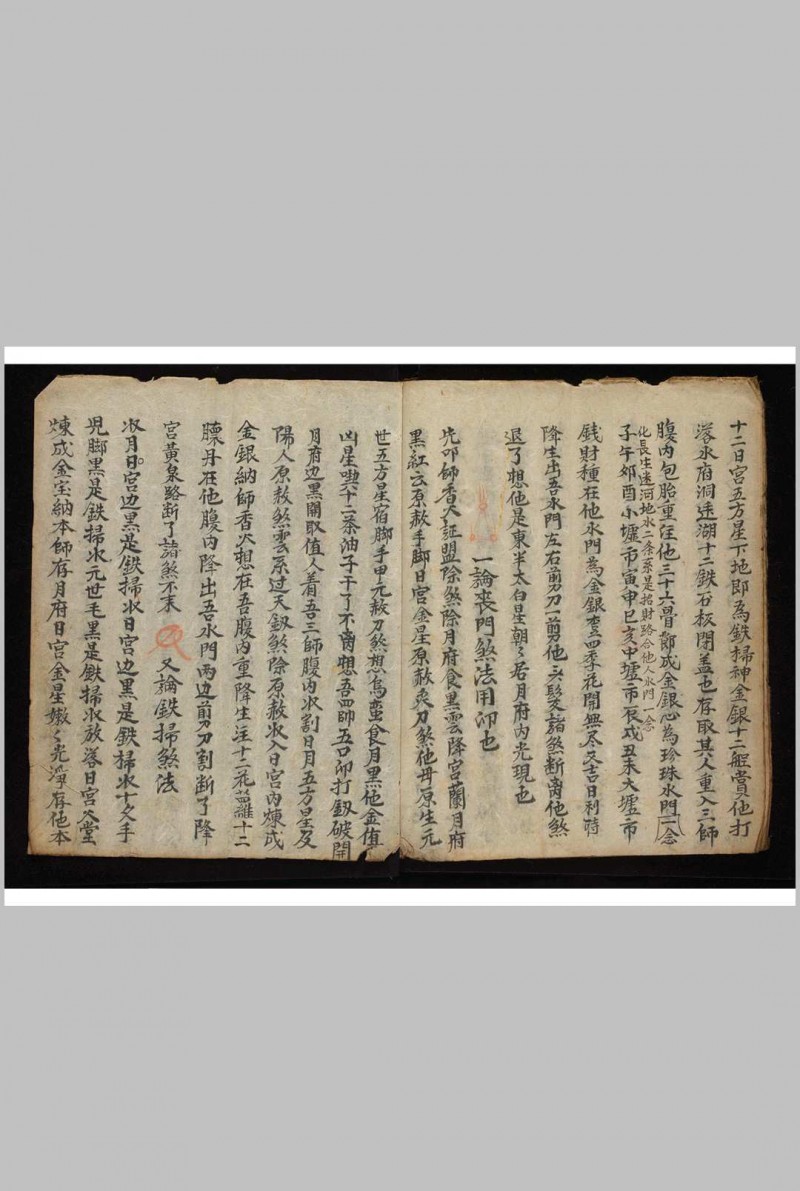 十二日宮五方星下地即為鉄掃神金銀十二船賞他打
落水府洞迷湖十二鉄石板閉盖也存取其人重入三師
腹内包胎重注他三十六骨節成金銀心為珍珠水門一念
化長生迷河地水二条系是招財路合他人水門一念
子午夘酉小墟市寅申巳亥中墟市辰戌丑未大墟市
銭財種在他水門為金銀査四季花開無尽又吉日利時
降生出吾水門左右剪刀一剪他頭髮諸煞断离他煞
退了想他是東半太白星朝〻若月府内光現也
一論喪門煞法用卯也
先叩師香火証盟除煞除月府食黒雲降宮蘭月府
黒紅云原赦手脚日宮金星原赦炙刀煞他毋原生元
世五方星宿脚手甲元赦刀煞想烏蛮食月黒他金值
凶星喫十二茶油子干了不离想吾四帥五口卯打釼破開
月府边黒關取值人着吾三師腹内水割日月五方星及
陽人原赦煞雲原过天釼煞除原赦水入日宮内煉成
金銀納師香火想在吾腹内重降生注十二花羅十二
臕丹在他腹内降出吾水門両边剪刀割断了降
宮黄泉路断了諸煞不来 又論鉄掃煞法
水月日宮边黒是鉄掃水日宮边黒是鉄掃水十父手
児脚黒是鉄掃水元世毛黒是鉄掃水放落日宮火堂
煉成金宝納本師存月府日宮金星嫩〻光淨存他本